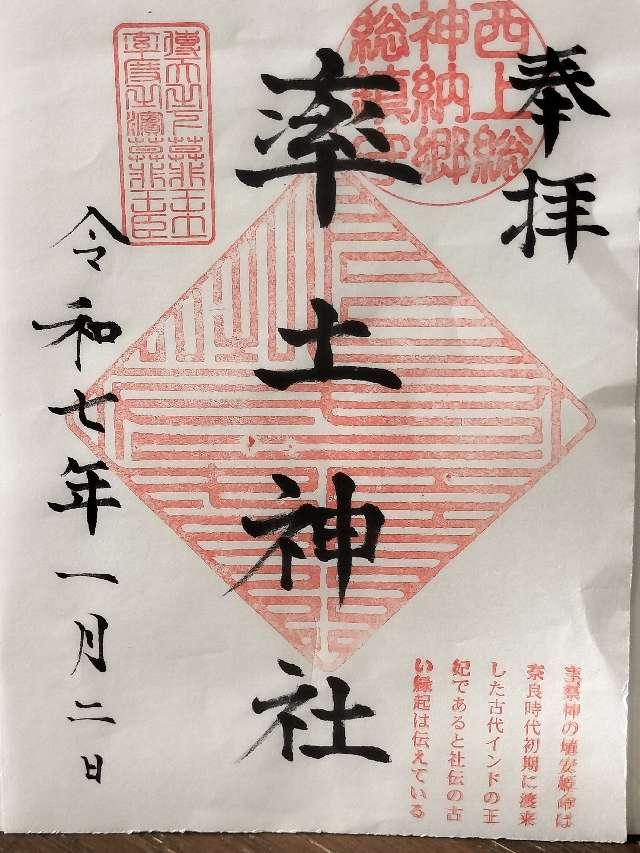 奉拝
西上総
神納郷
総鎮守
率土神社
溥天之下莫非王土
率土之濱莫非王臣
令和七年一月二日
主祭神の埴安姫命は
奈良時代初期に渡来
した古代インドの王
妃であると社伝の古
い縁起は伝えている